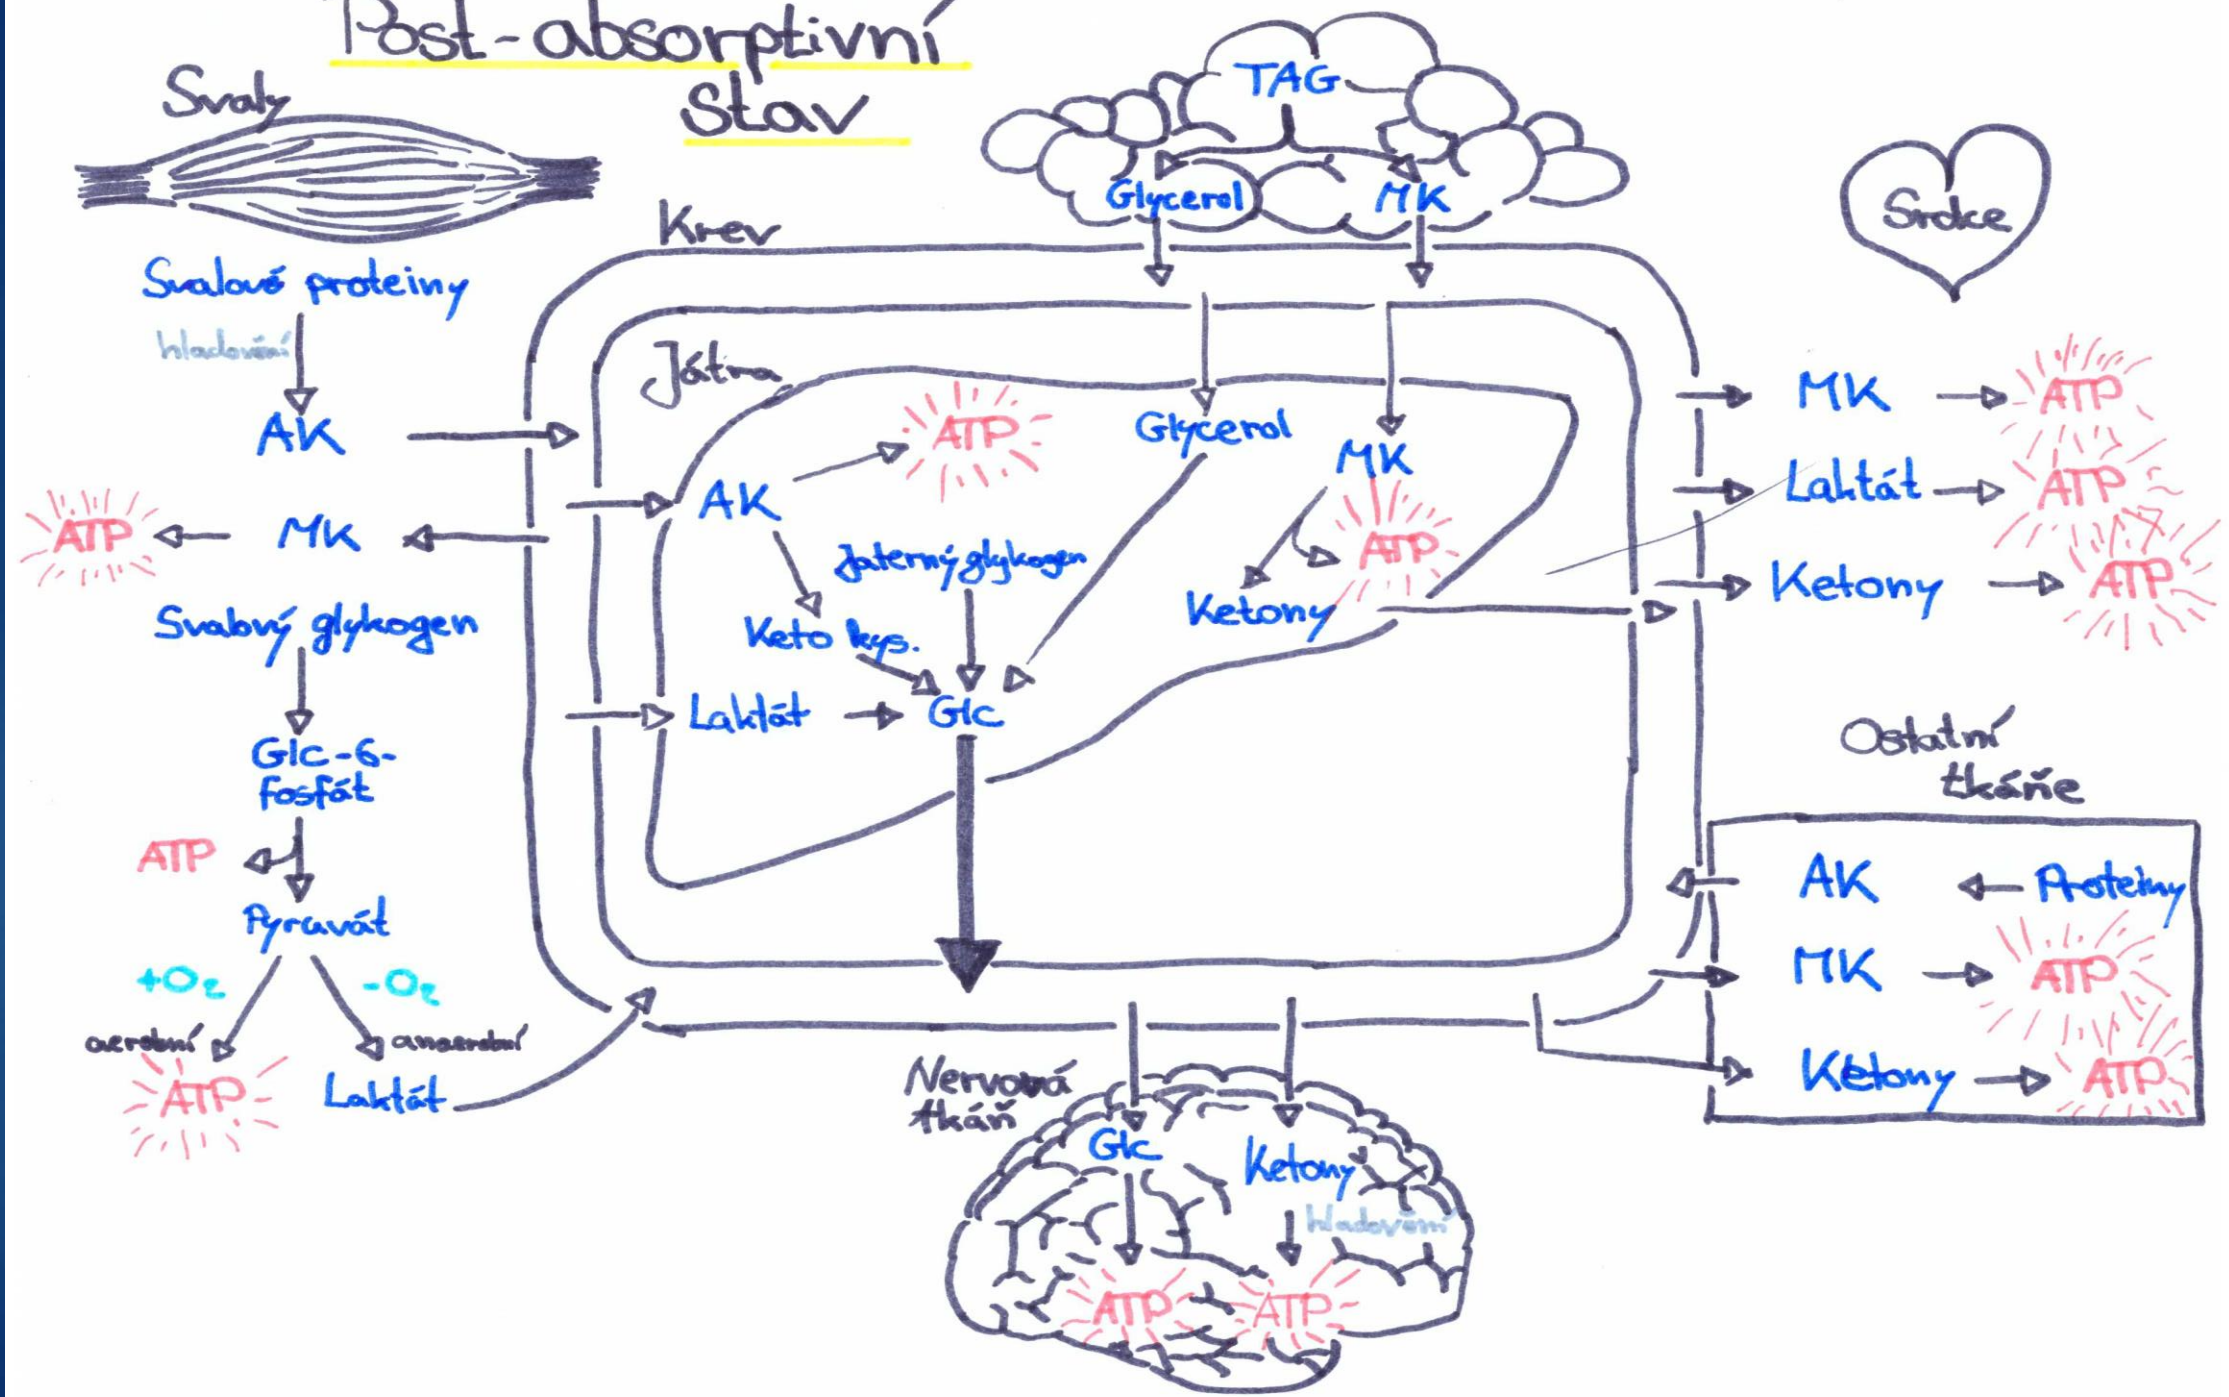 Post-absorptivní
stav
Svaly
Svalové proteiny
hladovění
AK
ATP
MK
Svalový glykogen
Glc-6-
fosfát
ATP
Pyruvát
+O₂
-O₂
aerobní
anaerobní
ATP
Laktát
TAG
Glycerol
MK
Krev
Játra
AK
ATP
Glycerol
MK
ATP
Jaterný glykogen
Keto kys.
Ketony
Laktát
Glc
Srdce
MK
ATP
Laktát
ATP
Ketony
ATP
Ostatní
tkáňe
AK
Proteiny
MK
ATP
Ketony
ATP
Nervová
tkáň
Glc
Ketony
hladovění
ATP
ATP